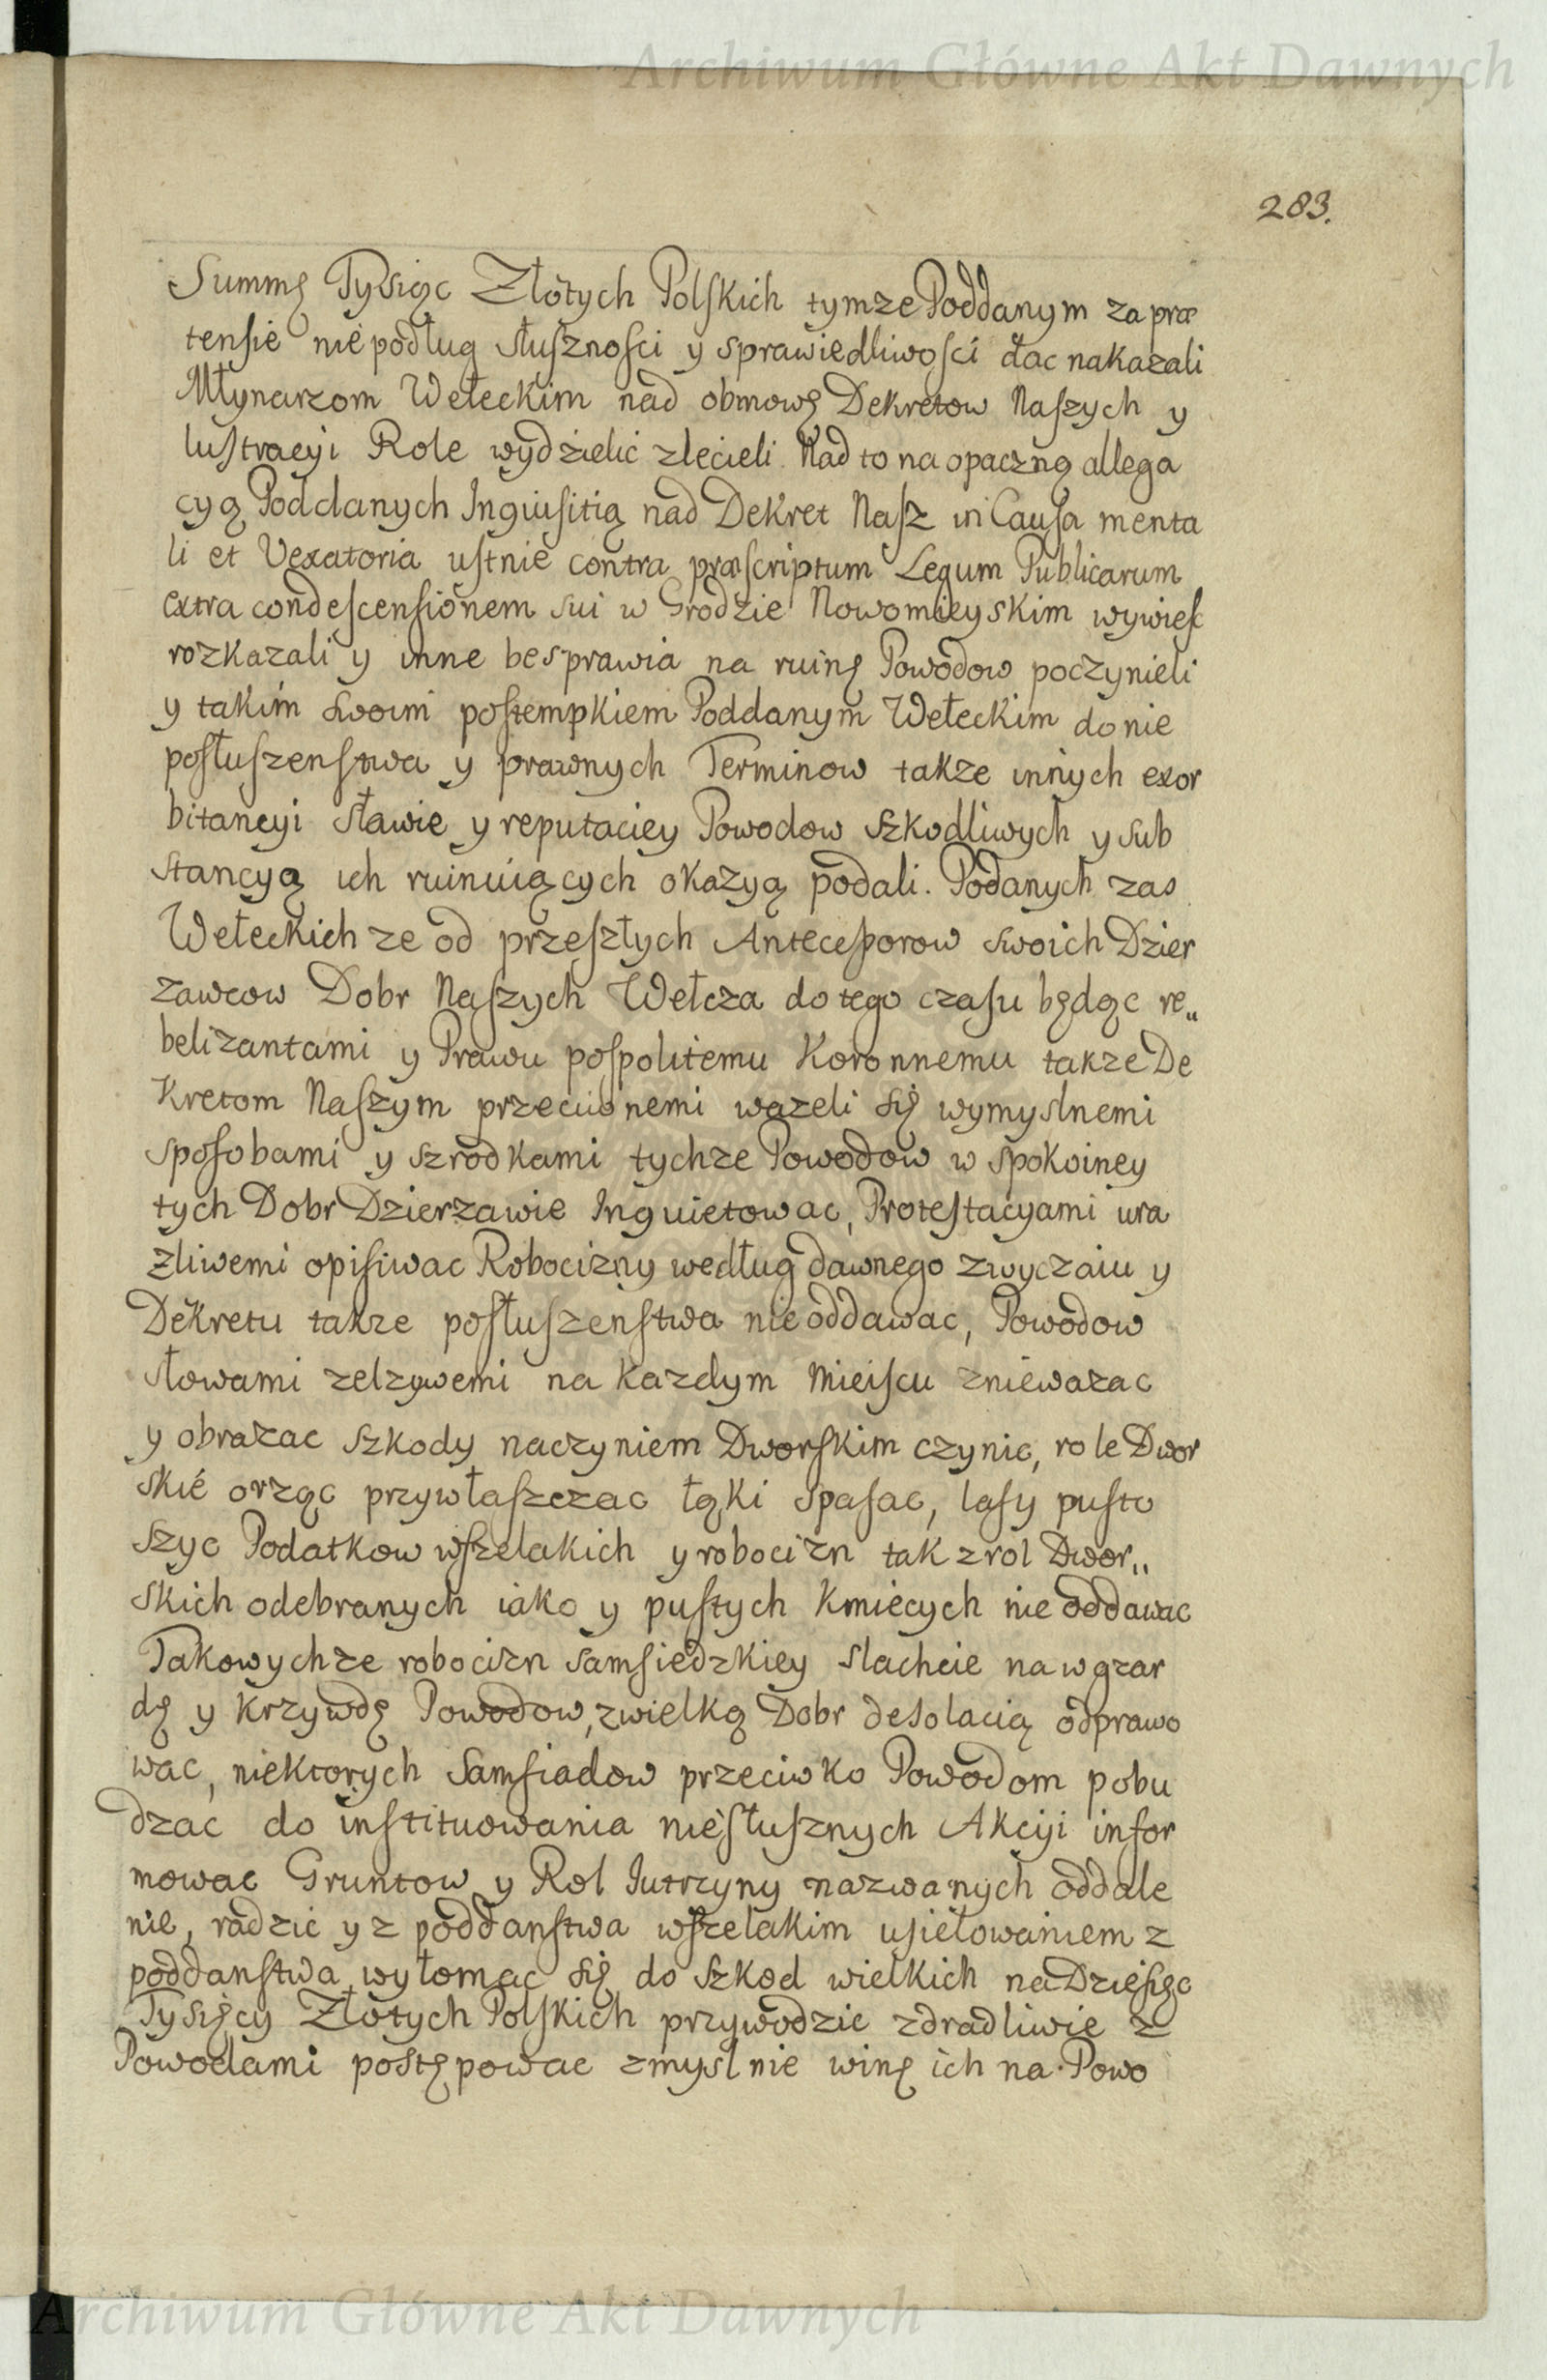 Archiwum Główne Akt Dawnych
283.
Summę Tysiąc Złotych Polskich tymze Poddanym za præ
tensie nie podług słusznosci y sprawiedliwosci dac nakazali
Młynarzom Wełeckim nad obmowę Dekretow Naszych y
lustracyi Role wydzielić zlecieli Nad to na opaczną allega
cyą Poddanych Inquisitią nad Dekret Nasz in Causa menta
li et Vexatoria ustnie contra præscriptum Legum Publicarum
extra condescensionem sui w Grodzie Nowomieyskim wywiesc
rozkazali y inne besprawia na ruinę Powodow poczynieli
y takim swoim postempkiem Poddanym Wełeckim do nie
posłuszenstwa y prawnych Terminow takze innych exor
bitancyi sławie y reputaciey Powodow szkodliwych y sub
stancyą ich ruinuiących okazyą podali. Podanych zas
Wełeckich ze od przeszłych Antecessorow swoich Dzier
zawcow Dobr Naszych Wełcza do tego czasu będąc re„
belizantami y Prawu pospolitemu Koronnemu takze De
kretom Naszym przeciwnemi wazeli się wymyslnemi
sposobami y szrodkami tychze Powodow w spokoiney
tych Dobr Dzierzawie Inquietowac, Protestacyami ura
zliwemi opisiwac Robocizny według dawnego zwyczaiu y
Dekretu takze posłuszenstwa nie oddawac, Powodow
słowami zelzywemi na kazdym mieiscu zniewazac
y obrazac szkody naczyniem Dworskim czynic, role Dwor
skie orząc przywłaszczac łąki spasac, lasy pusto
szyc Podatkow wszelakich y robocizn tak z rol Dwor„
skich odebranych iako y pustych kmiecych nie oddawac
Takowychze robocizn samsiedzkiey slachcie na wgzar
dę y krzywdę Powodow, z wielką Dobr desolacią odprawo
wac, niektorych Samsiadow przeciwko Powodom pobu
dzac do instituowania niesłusznych Akcyi infor
mowac Gruntow y Rol Jutrzyny nazwanych oddale
nie, radzic y z poddanstwa wszelakim usiełowaniem z
poddanstwa wyłomac się do szkod wielkich na Dziesięc
Tysięcy Złotych Polskich przywodzic zdradliwie z
Powodami postępowac zmyslnie winę ich na Powo
Archiwum Główne Akt Dawnych